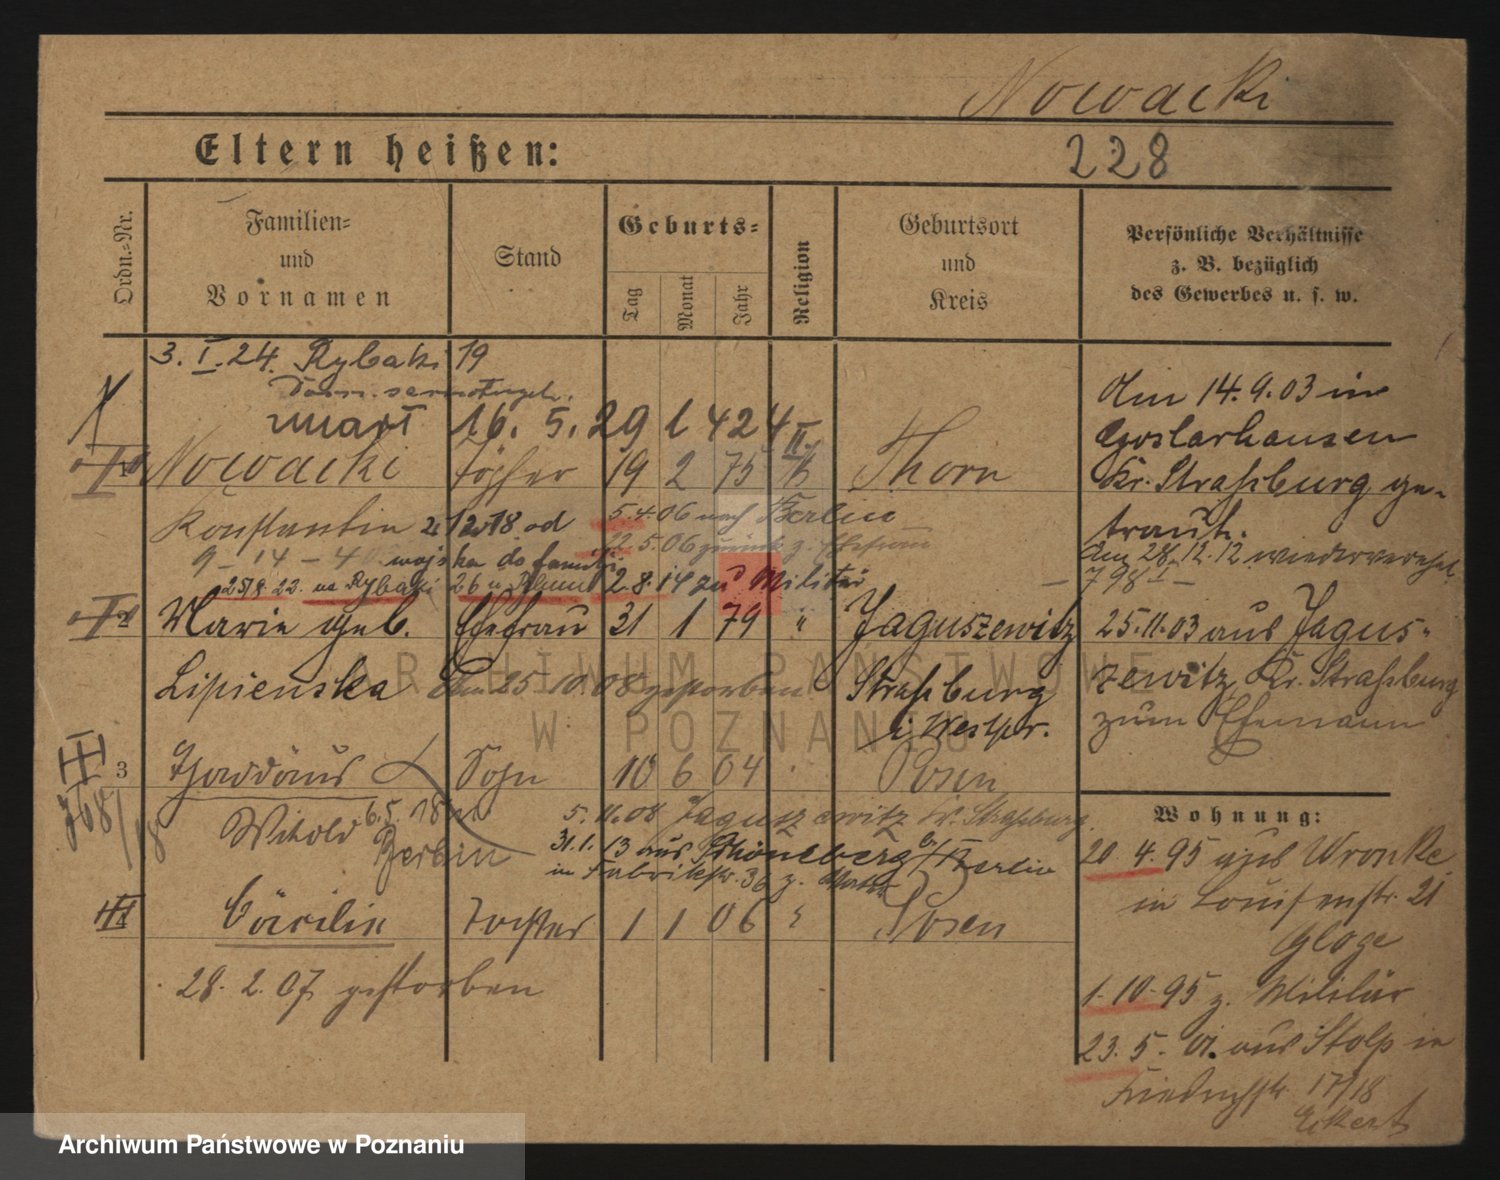 Nowacki
Eltern heißen:
228
Ordn.=Nr.
Familien=
und
Vornamen
Stand
Geburts=
Tag
Monat
Jahr
Religion
Geburtsort
und
Kreis
Persönliche Verhältnisse
z. B. bezüglich
des Gewerbes u. s. w.
3. I. 24. Rybaki 19
zmarł 16. 5. 29
Nowacki Töpfer 19 2 75 k Thorn
Konstantin
5.4.06 nach Berlin
12.5.06 zurück z. Ehefrau
wojska do familji
25/9. 22. na Rybaki
2.8.14 zu Militär
Am 14.9.03 in
Goslarhausen
Kr. Straßburg ge-
traut.
Am 28.12.12 wiederverehel.
2 Marie geb. Ehefrau 31 1 79 " Jaguszewitz
Lipienska Am 25.10.08 gestorben Straßburg
i. Westpr.
25.11.03 aus Jagus-
zewitz Kr. Straßburg
zum Ehemann
III 3 Thaddäus Sohn 10 6 04 Posen
Witold 6.5.18 n
Berlin
5.11.08 Jaguszewitz Kr. Straßburg
31.1.13 aus Schöneberg b/ Berlin
in Fabrikstr. 36 z. Vater
Cäcilie Tochter 1 1 06 Posen
28. 2. 07 gestorben
Wohnung:
20. 4. 95 aus Wronke
in Louisenstr. 21
Gloge
1. 10. 95 z. Militär
23. 5. 01. aus Stolp in
Friedrichstr. 17/18
Eckert
ARCHIWUM PAŃSTWOWE
W POZNANIU
Archiwum Państwowe w Poznaniu